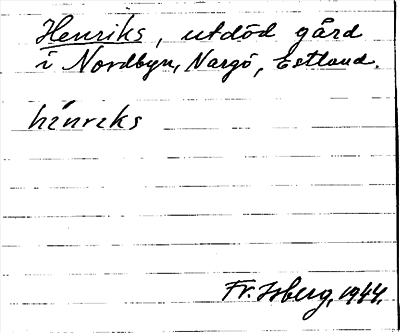 Henriks, utdöd gård
i Nordbyn, Nargö, Estland.
hìnrɛks
Fr. Isberg, 1944.